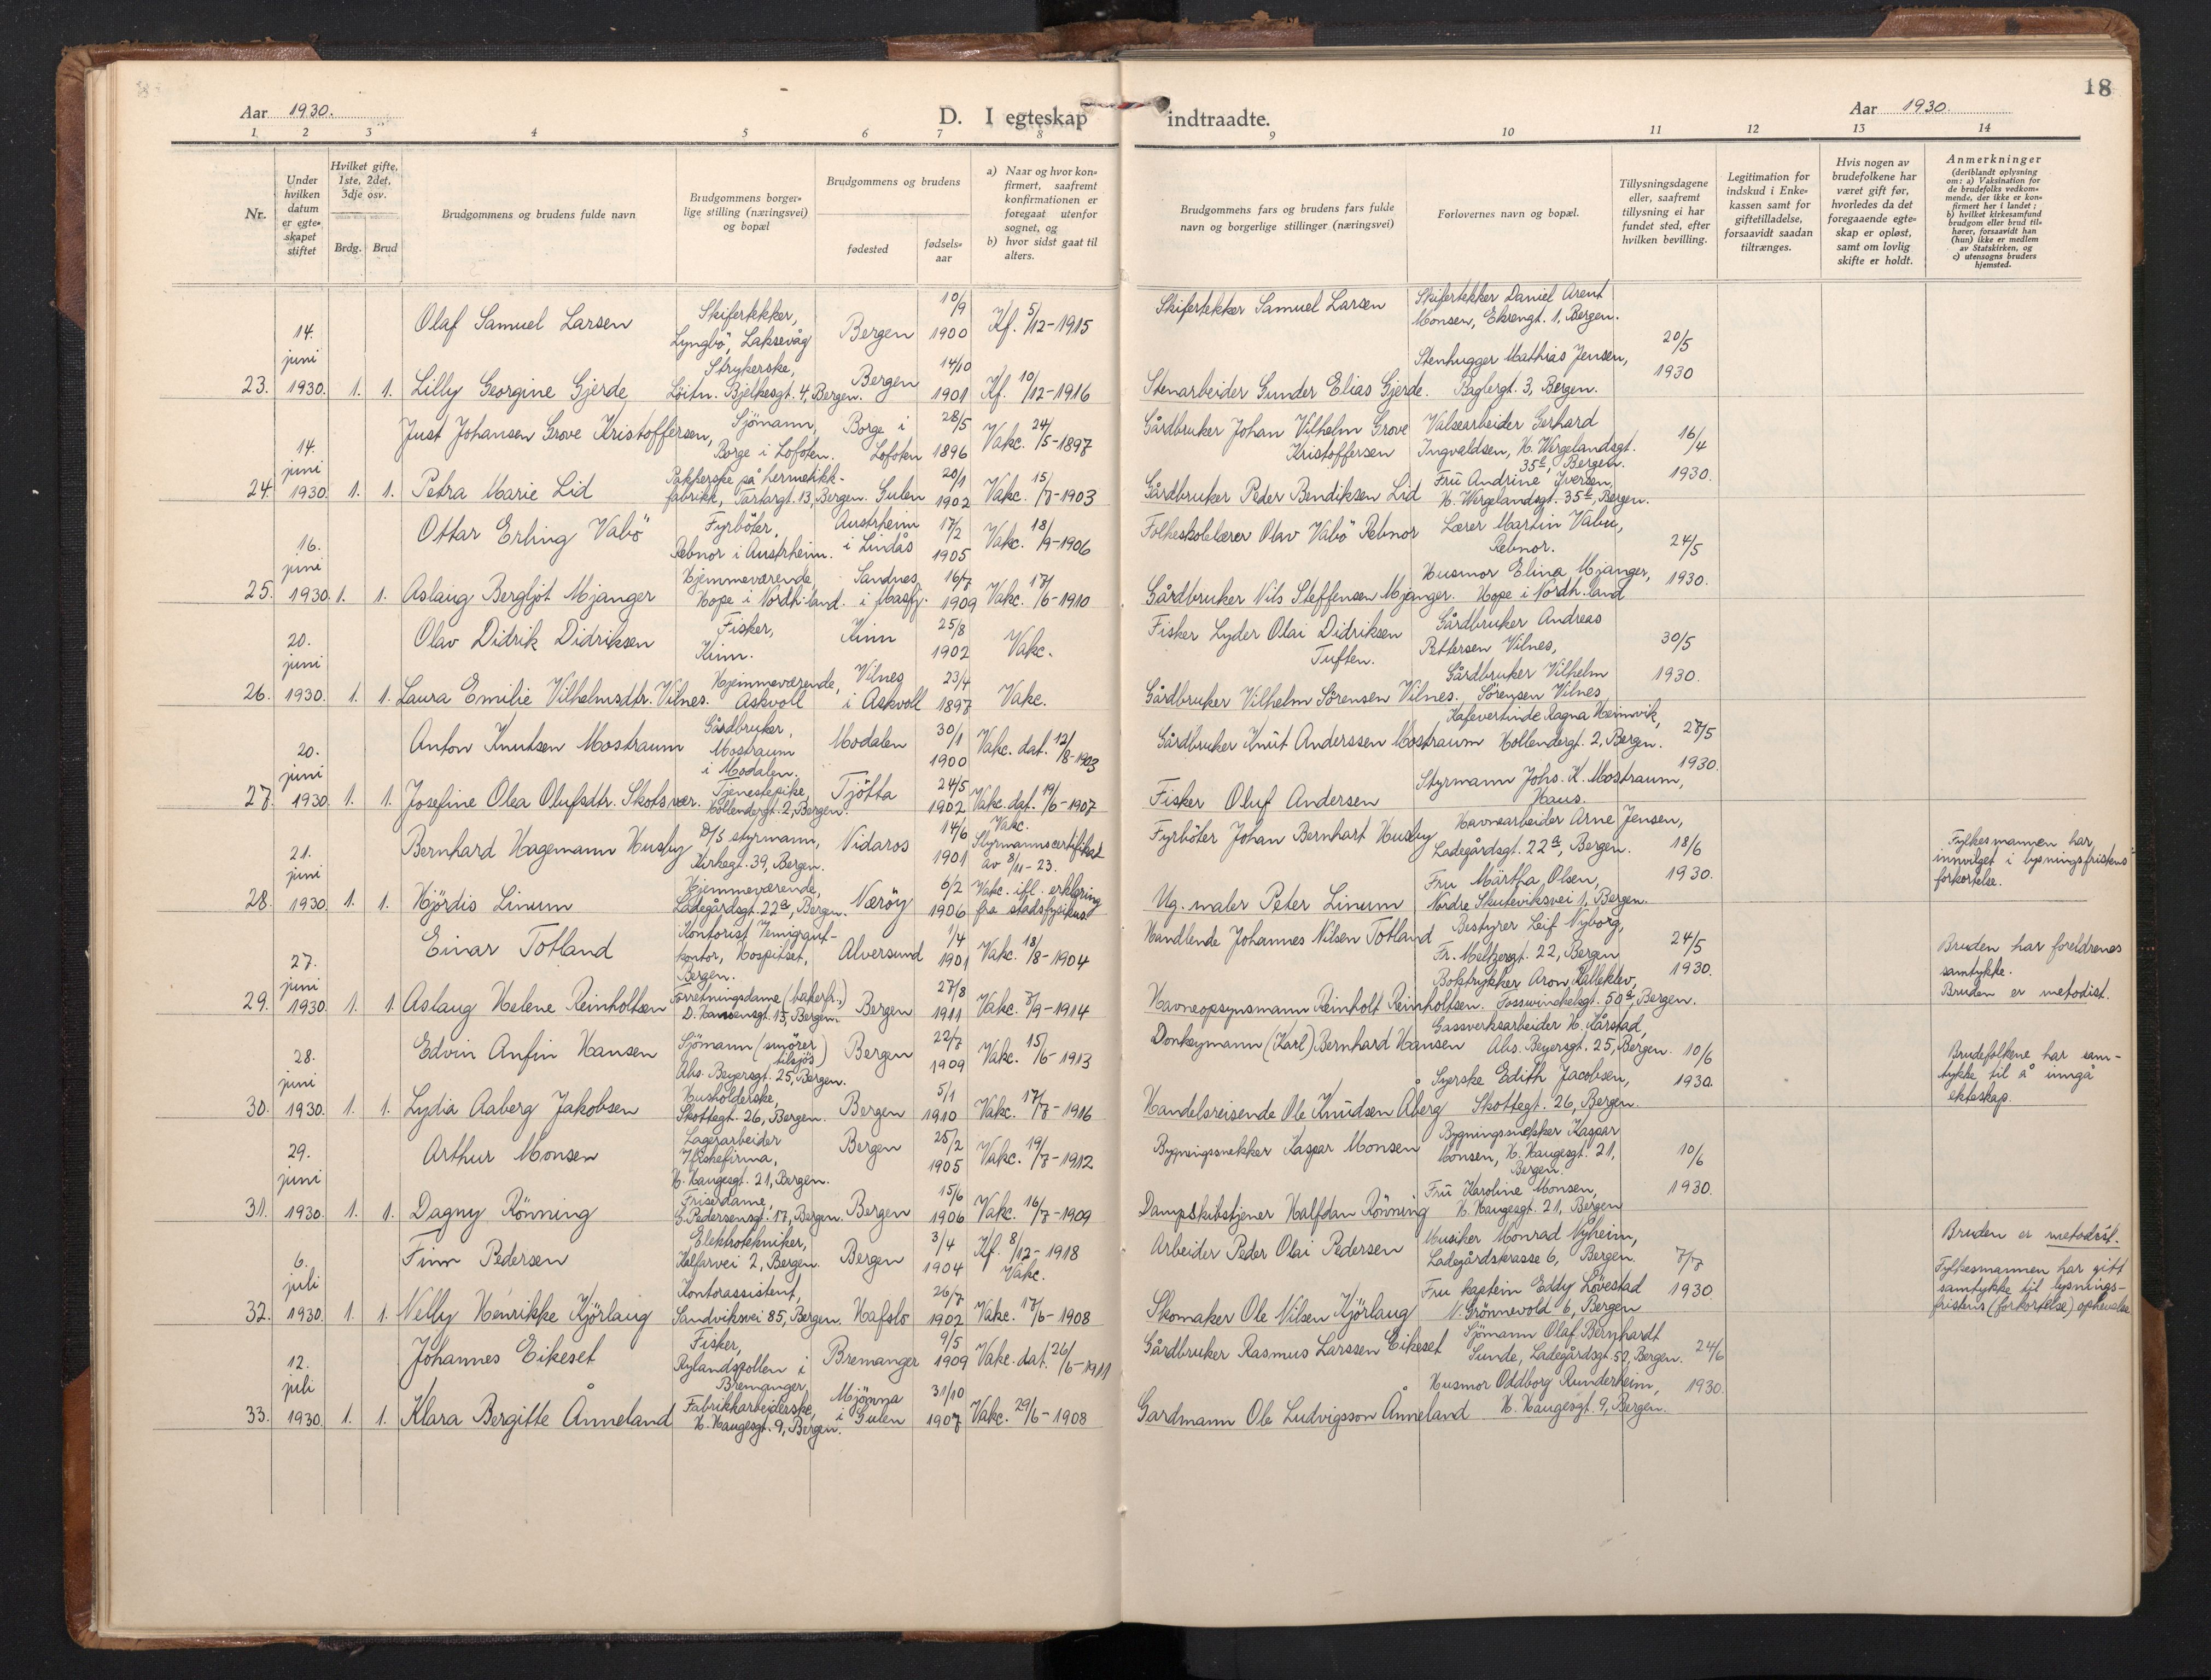 18
Aar 1930.
D. I egteskap indtraadte.
Aar 1930.
1 2 3 4 5 6 7 8 9 10 11 12 13 14
Nr.
Under hvilken datum er egte-skapet stiftet
Hvilket gifte, 1ste, 2det, 3dje osv.
Brdg. Brud
Brudgommens og brudens fulde navn
Brudgommens borger-lige stilling (næringsvei) og bopæl
Brudgommens og brudens
fødested
fødsels-aar
a) Naar og hvor kon-firmert, saafremt konfirmationen er foregaat utenfor sognet, og
b) hvor sidst gaat til alters.
Brudgommens fars og brudens fars fulde navn og borgerlige stillinger (næringsvei)
Forlovernes navn og bopæl.
Tillysningsdagene eller, saafremt tillysning ei har fundet sted, efter hvilken bevilling.
Legitimation for indskud i Enke-kassen samt for giftetilladelse, forsaavidt saadan tiltrænges.
Hvis nogen av brudefolkene har været gift før, hvorledes da det foregaaende egte-skap er opløst, samt om lovlig skifte er holdt.
Anmerkninger (deriblandt oplysning om: a) Vaksination for de brudefolks vedkom-mende, der ikke er kon-firmert her i landet; b) hvilket kirkesamfund brudgom eller brud til-hører, forsaavidt han (hun) ikke er medlem av Statskirken, og c) utensogns bruders hjemsted.
14. juni 1930. Olaf Samuel Larsen Skifertekker, Lyngbö, Laksevåg Bergen 10/9 1900 Kf. 5/12-1915 Skifertekker Samuel Larsen Skifertekker Daniel Arent Monsen, Ekrengt. 1, Bergen. 20/5 1930
23. 1. 1. Lilly Georgine Gjerde Strykerske, Löitn. Bjelkesgt. 4, Bergen. Bergen 14/10 1901 Kf. 10/12-1916 Stenarbeider Gunder Elias Gjerde. Stenhugger Mathias Jensen, Baglergt. 3, Bergen.
14. juni 1930. Just Johansen Grove Kristoffersen, Sjömann, Borge i Lofoten. Borge i Lofoten 28/5 1896 Vakc. 24/5-1897 Gårdbruker Johan Vilhelm Grove Kristoffersen Valsearbeider Gerhard Ingvaldsen, H. Wergelandsgt. 35c, Bergen. 16/4 1930.
24. 1. 1. Petra Marie Lid Pakkerske på hermetikk-fabrikk, Tartargt. 13, Bergen. Gulen 20/1 1902 Vakc. 15/7-1903 Gårdbruker Peder Bendiksen Lid Frü Andrine Iversen, H. Wergelandsgt. 35c, Bergen.
16. juni 1930. Ottar Erling Vabö Fyrböter, Rebnor i Austrheim. Austrheim i Lindås 17/2 1905 Vakc. 18/9-1906 Folkeskolelærer Olav Vabö Rebnor Lærer Martin Vabü, Rebnor. 24/5 1930.
25. 1. 1. Aslaug Bergljot Mjanger Hjemmeværende, Hope i Nordh.land. Sandnes i Masfj. 16/7 1909 Vakc. 17/6-1910 Gårdbruker Nils Steffensen Mjanger. Husmor Elina Mjanger, Hope i Nordh.land
20. juni 1930. Olav Didrik Didriksen Fisker, Kinn. Kinn 25/8 1902 Vakc. Fisker Lyder Olai Didriksen Tuften. Gårdbruker Andreas Pettersen Vilnes, 30/5 1930.
26. 1. 1. Laura Emilie Vilhelmsdtr. Vilnes. Hjemmeværende, Askvoll Vilnes i Askvoll 23/4 1897 Vakc. Gårdbruker Vilhelm Sörensen Vilnes. Gårdbruker Vilhelm Sörensen Vilnes,
20. juni 1930. Anton Knutsen Mostraum Gårdbruker, Mostraum i Modalen. Modalen 30/1 1900 Vakc. dat. 12/8-1903 Gårdbruker Knüt Anderssen Mostraum Kafevertinde Ragna Heimvik, Hollendergt. 2, Bergen. 27/5 1930.
27. 1. 1. Josefine Olea Olufsdtr. Skotsvær. Tjenestepike, Hollendergt. 2, Bergen. Tjötta 24/5 1902 Vakc. dat. 19/6-1907 Fisker Oluf Andersen Styrmann Johs. K. Mostraum, Haus.
21. juni 1930. Bernhard Hagemann Husby D/S styrmann, Kirkegt. 39, Bergen. Nidaros 14/6 1901 Vakc. Styrmannscertifikat av 8/11-23. Fyrböter Johan Bernhart Husby Havnearbeider Arne Jensen, Ladegårdsgt. 22a, Bergen. 18/6 1930. Fylkesmannen har innvilget i lysningsfristens forkortelse.
28. 1. 1. Hjördis Linum Hjemmeværende, Ladegårdsgt. 22a, Bergen. Næröy 6/2 1906 Vakc. ifl. erklæring fra stadsfysikus Ug. maler Peter Linum Fru Märtha Olsen, Nordre Skuteviksvei 1, Bergen.
27. juni 1930. Einar Totland Kontorist kontor, Hospitset, Bergen. Alversund 1/4 1901 Vakc. 18/8-1904 Handlende Johannes Nilsen Totland Bestyrer Leif Nyborg, Fr. Meltzersgt. 22, Bergen 24/5 1930. Bruden har foreldrenes samtykke. Bruden er metodist.
29. 1. 1. Aslaug Helene Reinholtsen Forretningsdame (bakerfr.) D. Hansensgt. 15, Bergen. Bergen 27/8 1911 Vakc. 8/9-1914 Havneopsynsmann Reinholt Reinholtsen. Boktrykker Aron Kalleklev, Fosswinckelsgt. 50a, Bergen.
28. juni 1930. Edvin Anfin Hansen Sjömann (smörer tilsjös) Abs. Beyersgt. 25, Bergen. Bergen 22/7 1909 Vakc. 15/6-1913 Donkeymann (Karl) Bernhard Hansen Gassverksarbeider H. Kårstad, Abs. Beyersgt. 25, Bergen. 10/6 1930. Brudefolkene har sam-tykke til å inngå ekteskap.
30. 1. 1. Lydia Aaberg Jakobsen Husholderske, Skottegt. 26, Bergen. Bergen 5/1 1910 Vakc. 17/7-1916 Handelsreisende Ole Knüdsen Åberg Syerske Edith Jacobsen, Skottegt. 26, Bergen.
29. juni 1930. Arthur Monsen Lagerarbeider H. Haugesgt. 21, Bergen. Bergen 25/2 1905 Vakc. 19/7-1912 Bygningssnekker Kaspar Monsen Bygningssnekker Kaspar Monsen, H. Haugesgt. 21, Bergen. 10/6 1930.
31. 1. 1. Dagny Rönning Friserdame, G. Pedersensgt. 17, Bergen. Bergen 15/6 1906 Vakc. 16/7-1909 Dampskibstjener Halfdan Rönning Frü Karoline Monsen, H. Haugesgt. 21, Bergen
6. juli 1930. Finn Pedersen Elektrotekniker, Kalfarvei 2, Bergen. Bergen 3/4 1904 Kf. 8/12-1918 Vakc. Arbeider Peder Olai Pedersen Musiker Monrad Nyheim, Ladegårdsterasse 6, Bergen. 7/7 1930 Bruden er metodist. Fylkesmannen har gitt samtykke til lysnings-fristens (forkortelse) ophevelse
32. 1. 1. Nelly Henrikke Kjörlaug Kontorassistent, Sandviksvei 85, Bergen. Hafslo 26/7 1902 Vakc. 17/6-1908 Skomaker Ole Nilsen Kjörlaug Fru kaptein Eddy Lövestad N. Grönnevold 6, Bergen
12. juli 1930. Johannes Eikeset Fisker, Rylandspollen i Bremanger Bremanger 9/5 1909 Vakc. dat. 26/6-1911 Gårdbruker Rasmus Larssen Eikeset Sjömann Olaf Bernhardt Sunde, Ladegårdsgt. 50, Bergen. 24/6 1930.
33. 1. 1. Klara Bergitte Ånneland Fabrikkarbeiderske, H. Haugesgt. 9, Bergen. Mjömna i Gulen 31/10 1907 Vakc. 29/6-1908 Gardmann Ole Ludvigsson Ånneland Husmor Oddborg Runderheim, H. Haugesgt. 9, Bergen.